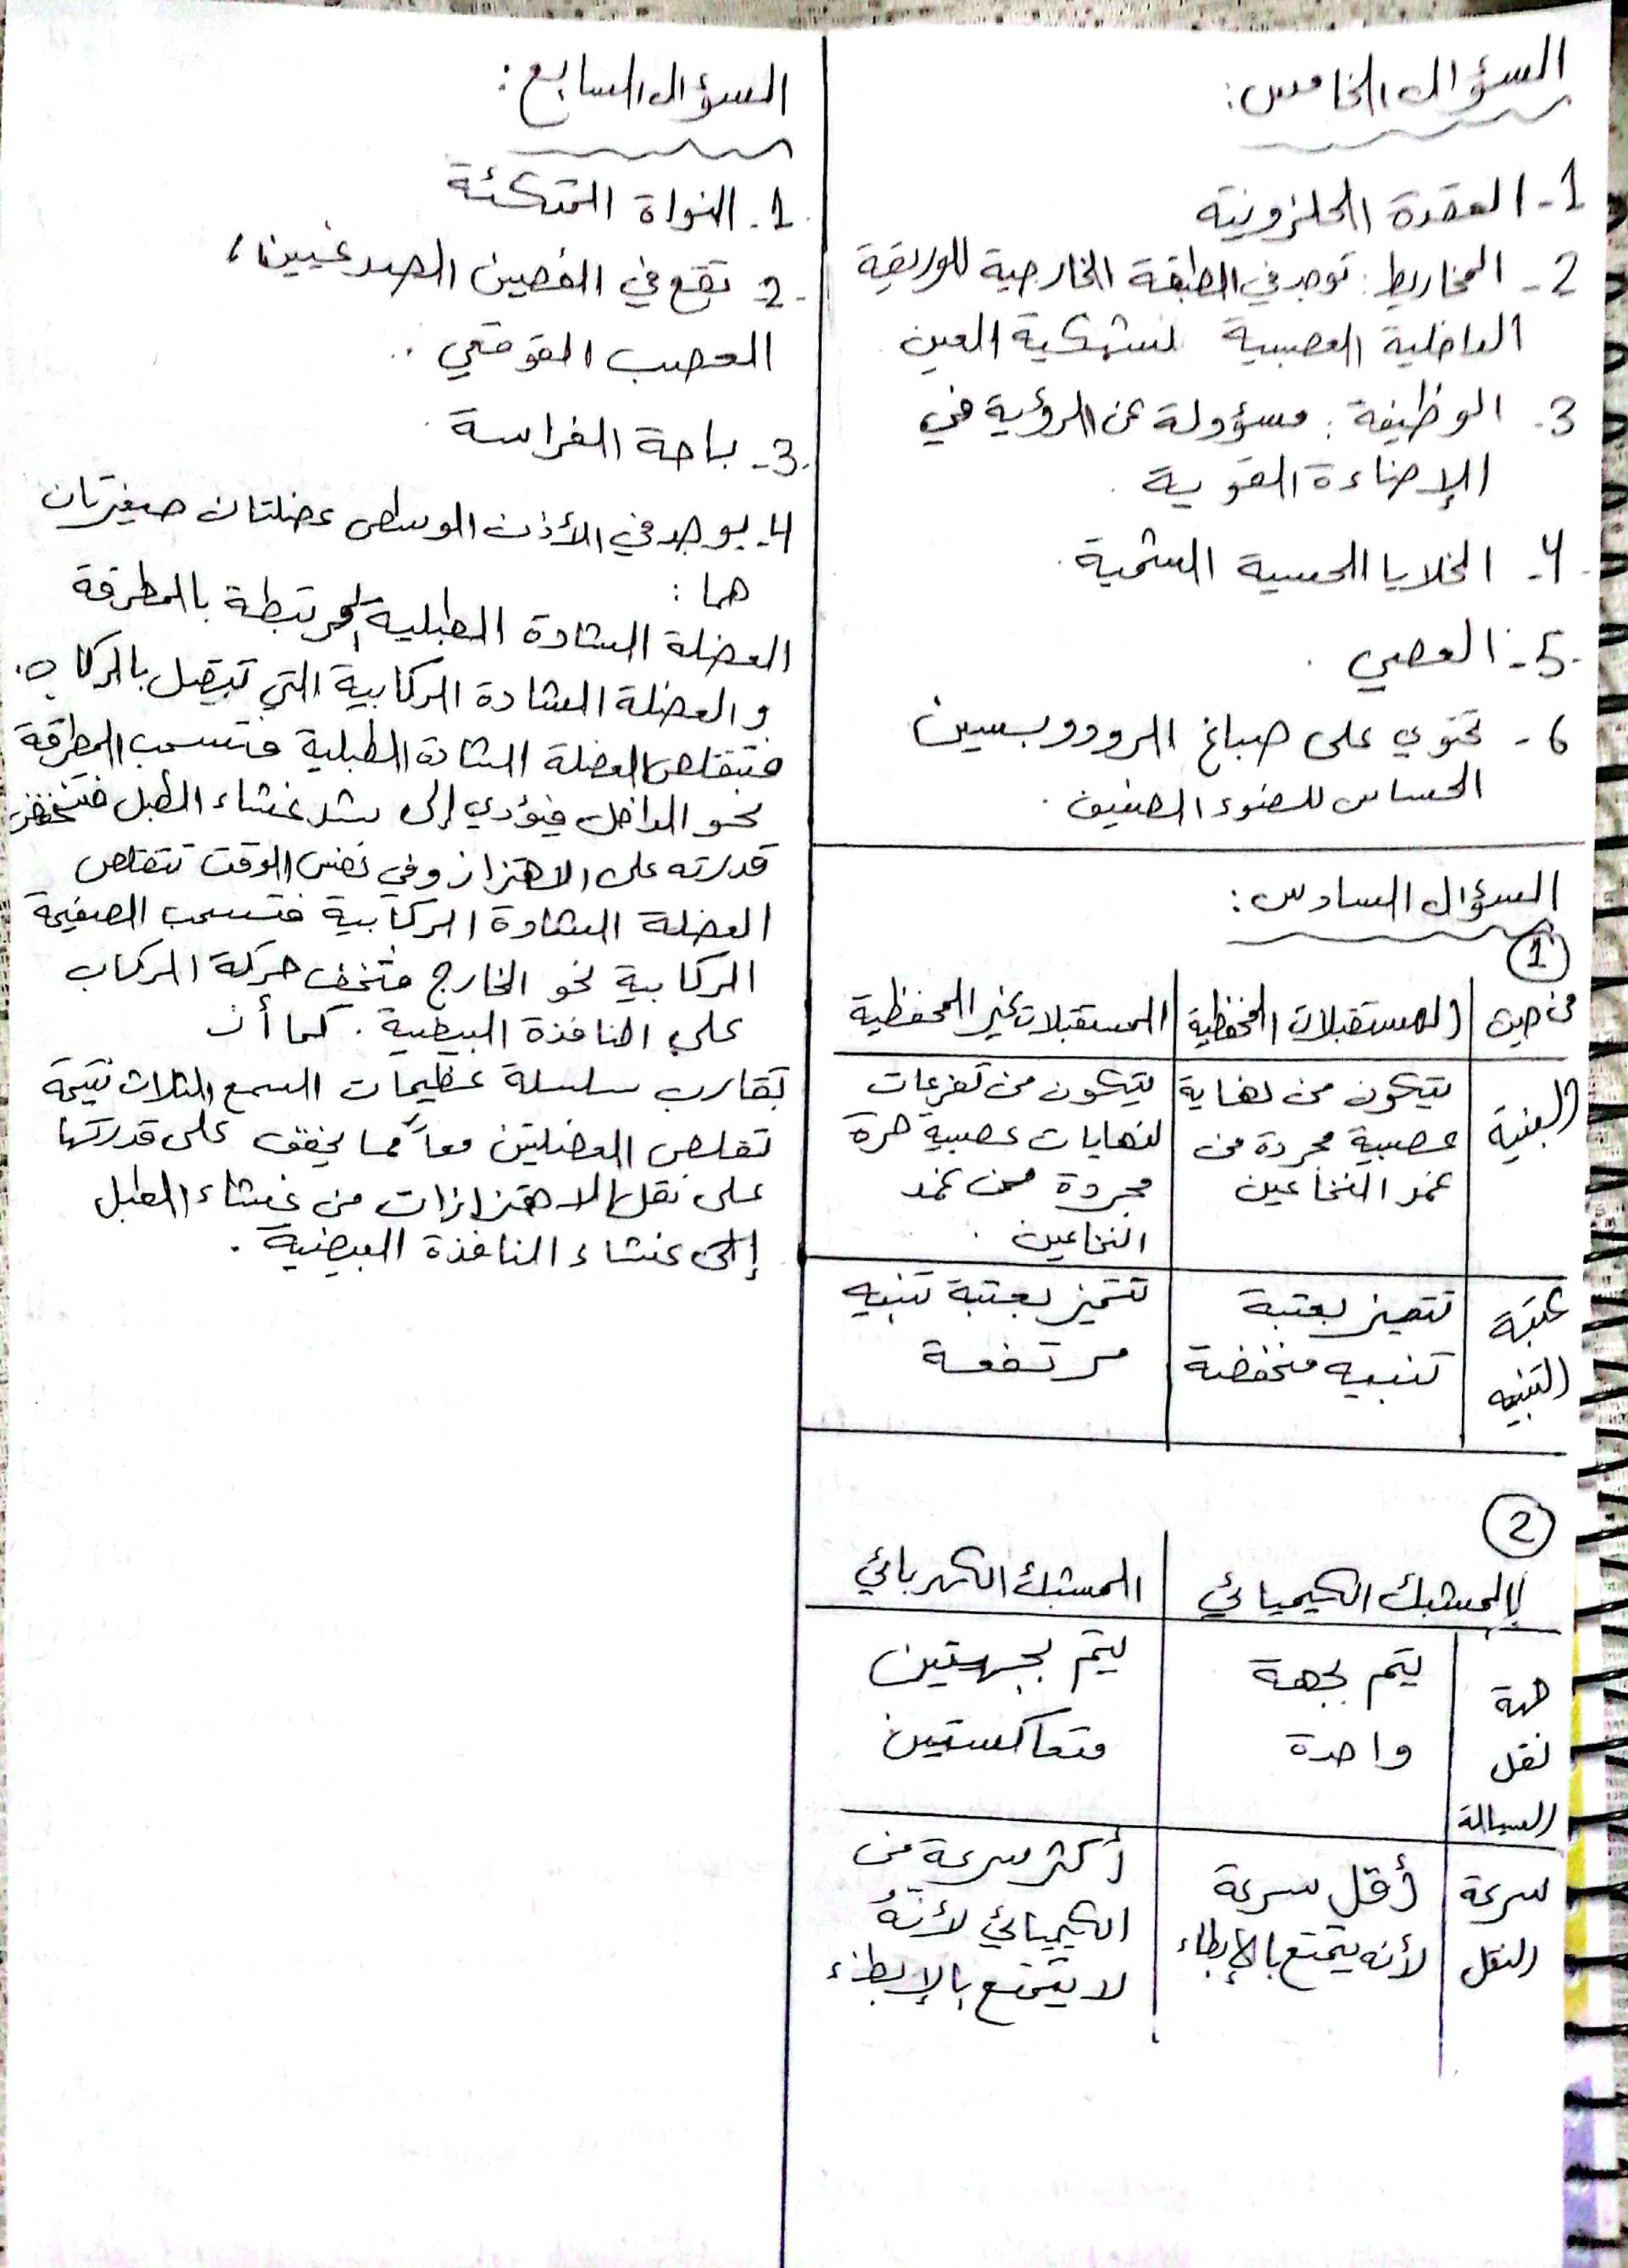 السؤال الخامس:
1- العقدة الحلزونية
2- المخاريط: توجد في الطبقة الخارجية للوريقة
الداخلية العصبية لشبكية العين
3- الوظيفة: مسؤولة عن الرؤية في
الإضاءة القوية.
4- الخلايا الحسية الشمية.
5- العصي.
6- تحتوي على صباغ الرودوبسين
الحساس للضوء الضعيف.
السؤال السادس:
1
من حيث | المستقبلات المحفظية | المستقبلات غير المحفظية
البنية | يتكون من نهاية | يتكون من تفرعات
عصبية مجردة من | لنهايات عصبية حرة
غمد النخاعين | مجردة من غمد
النخاعين.
عتبة | تتميز بعتبة | تتميز بعتبة تنبيه
التنبيه | تنبيه منخفضة | مرتفعة
2
المشبك الكيميائي | المشبك الكهربائي
جهة | يتم بجهة | يتم بجهتين
نقل | واحدة | متعاكستين
السيالة
سرعة | أقل سرعة | أكثر سرعة من
النقل | لأنه يتمتع بالإبطاء | الكيميائي لأنه
لا يتمتع بالإبطاء
السؤال السابع:
1- النواة المتكئة
2- تقع في الفصين الصدغيين،
العصب القوقعي.
3- باحة الفراسة.
4- يوجد في الأذن الوسطى عضلتان صغيرتان
هما:
العضلة الشادة الطبلية المرتبطة بالمطرقة
والعضلة الشادة الركابية التي تتصل بالركاب.
فتتقلص العضلة الشادة الطبلية فتسحب المطرقة
نحو الداخل فيؤدي إلى شد غشاء الطبل فتنخفض
قدرته على الاهتزاز وفي نفس الوقت تتقلص
العضلة الشادة الركابية فتسحب الصفيحة
الركابية نحو الخارج فتخف حركة الركاب
على النافذة البيضية. كما أن
تقارب سلسلة عظيمات السمع الثلاث نتيجة
تقلص العضلتين معاً مما يخفف على قدرتها
على نقل الاهتزازات من غشاء الطبل
إلى غشاء النافذة البيضية.